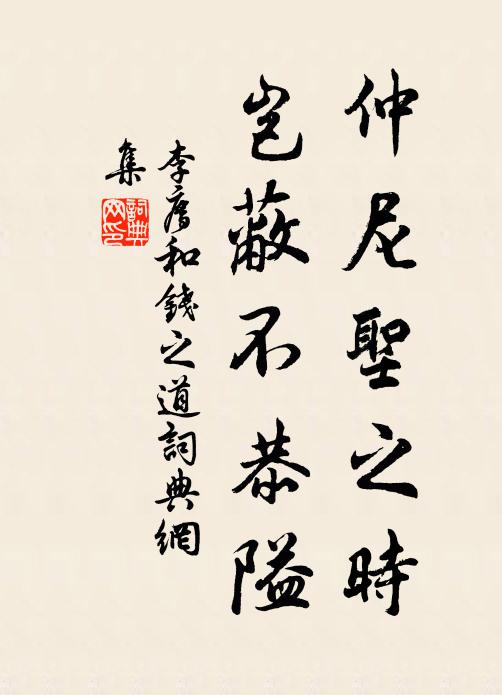 仲尼聖之時
豈蔽不恭隘
李廌和錢之道詞典網
集
詞典
网印